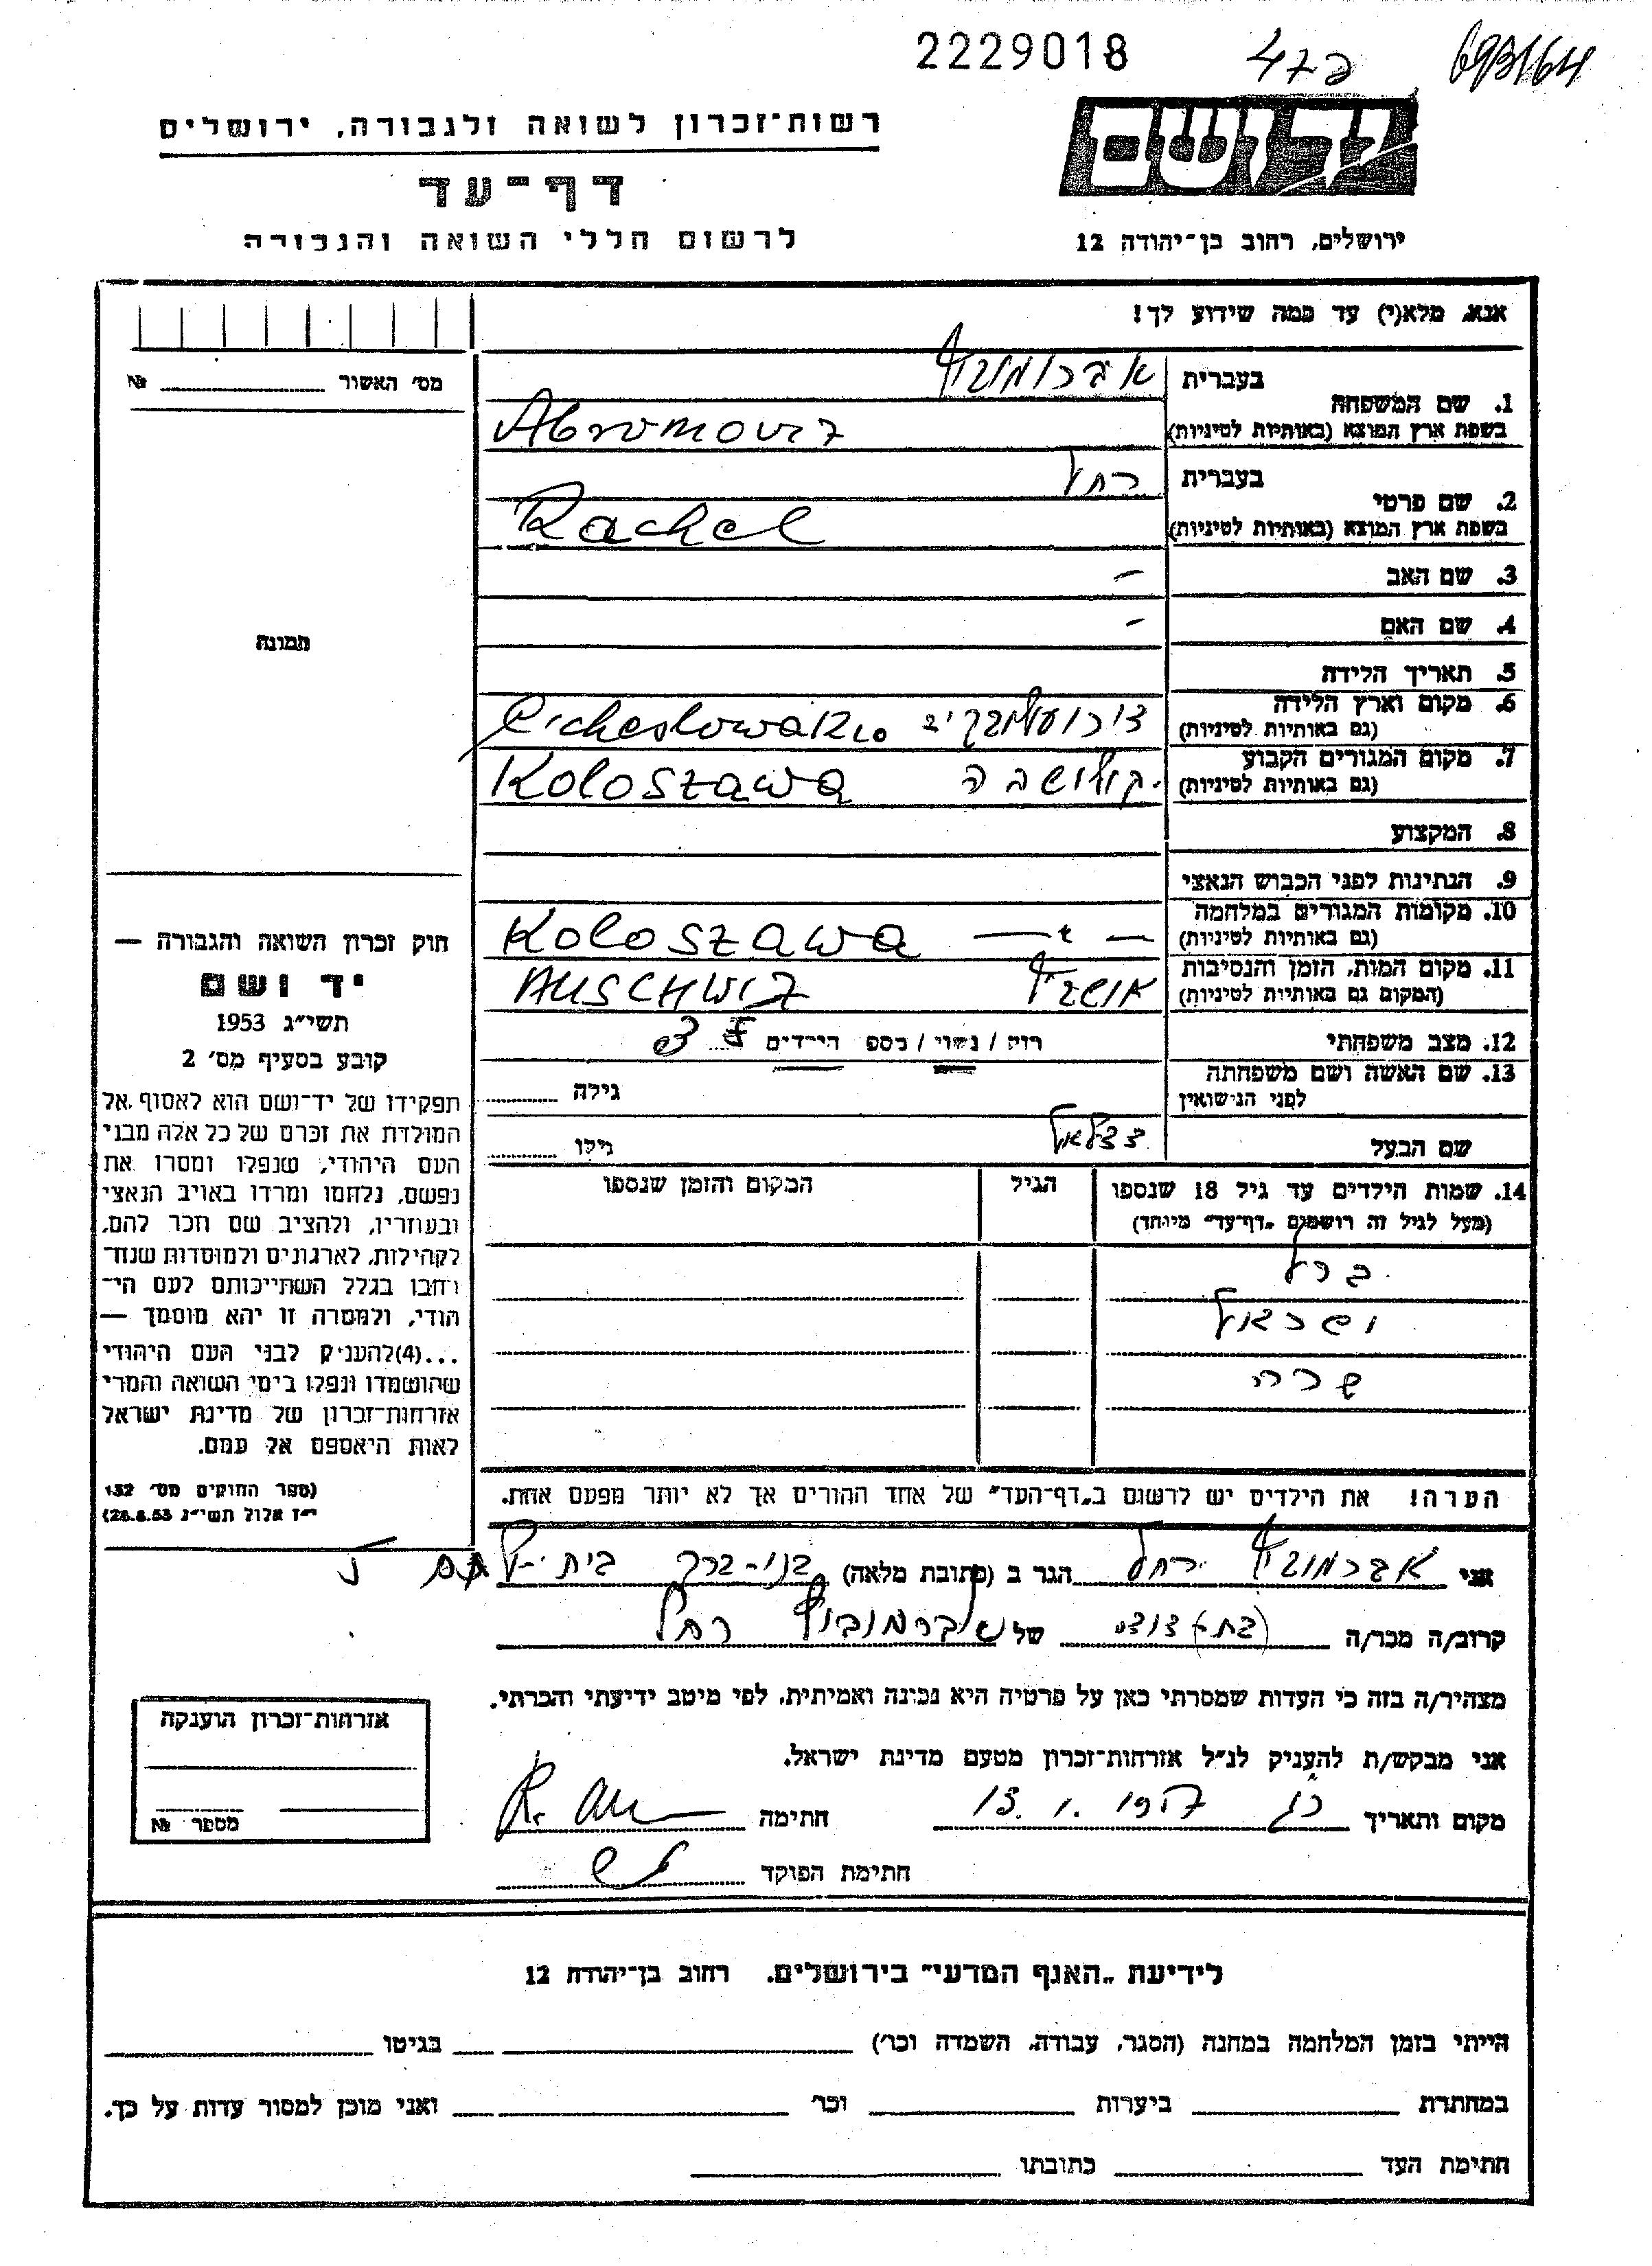 2229018
693164
יד ושם
רשות־זכרון לשואה ולגבורה, ירושלים
דף־עד
לרשום חללי השואה והגבורה
ירושלים, רחוב בן־יהודה 12
אנא, מלא(י) עד כמה שידוע לך!
מס׳ האשור № 
1. שם המשפחה
בעברית אברומוביץ
בשפת ארץ המוצא (באותיות לטיניות) Abromoviz
2. שם פרטי
בעברית רחל
בשפת ארץ המוצא (באותיות לטיניות) Rachel
3. שם האב -
4. שם האם -
תמונה
5. תאריך הלידה
6. מקום וארץ הלידה
(גם באותיות לטיניות)
7. מקום המגורים הקבוע Koloszawa
(גם באותיות לטיניות)
8. המקצוע
9. הנתינות לפני הכבוש הנאצי
10. מקומות המגורים במלחמה Koloszawa
(גם באותיות לטיניות)
11. מקום המות, הזמן והנסיבות AUSCHWIZ
(המקום גם באותיות לטיניות)
12. מצב משפחתי רווק / נשוי / מספר הילדים 3
13. שם האשה ושם משפחתה
לפני הנישואין גילה
שם הבעל בצלאל גילו
14. שמות הילדים עד גיל 18 שנספו הגיל המקום והזמן שנספו
(מעל לגיל זה רושמים „דף־עד” מיוחד)
ברל
ישראל
שרה
הערה! את הילדים יש לרשום ב„דף־העד” של אחד ההורים אך לא יותר מפעם אחת.
חוק זכרון השואה והגבורה —
יד ושם
תשי״ג 1953
קובע בסעיף מס׳ 2
תפקידו של יד־ושם הוא לאסוף אל
המולדת את זכרם של כל אלה מבני
העם היהודי, שנפלו ומסרו את
נפשם, נלחמו ומרדו באויב הנאצי
ובעוזריו, ולהציב שם וזכר להם,
לקהילות, לארגונים ולמוסדות שנח־
רבו בגלל השתייכותם לעם הי־
הודי, ולמטרה זו יהא מוסמך —
...(4) להעניק לבני העם היהודי
שהושמדו ונפלו בימי השואה והמרי
אזרחות־זכרון של מדינת ישראל
לאות היאספם אל עמם.
(ספר החוקים מס׳ 132
י״ז אלול תשי״ג 28.8.53)
אני אברמוביץ רחל הגר ב (כתובת מלאה) בני-ברק
קרוב/ה מכר/ה (בת) דודה של אברמוביץ רחל
מצהיר/ה בזה כי העדות שמסרתי כאן על פרטיה היא נכונה ואמיתית, לפי מיטב ידיעתי והכרתי.
אני מבקש/ת להעניק לנ״ל אזרחות־זכרון מטעם מדינת ישראל.
מקום ותאריך 13. 1. 1957 חתימה
חתימת הפוקד
אזרחות־זכרון הוענקה
מספר №
לידיעת „האגף המדעי” בירושלים. רחוב בן־יהודה 12
הייתי בזמן המלחמה במחנה (הסגר, עבודה, השמדה וכו׳) בגיטו
במחתרת ביערות וכו׳ ואני מוכן למסור עדות על כך.
חתימת העד כתובתו